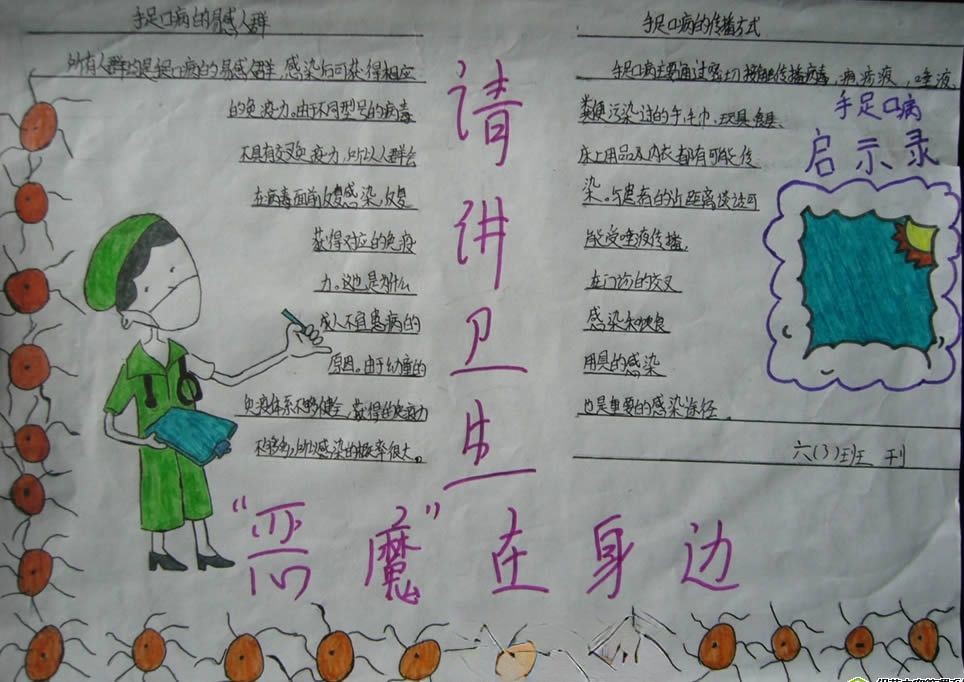 手足口病的易感人群
所有人群均是手足口病的易感人群,感染后可获得相应
的免疫力。由于不同型号的病毒
不具有交叉免疫力,所以人群会
在病毒面前反复感染,反复
获得对应的免疫
力。这也是为什么
成人不宜患病的
原因。由于幼童的
免疫体系不够健全,获得的免疫力
不够多,所以感染的概率很大。
请讲卫生
手足口病的传播方式
手足口病主要通过密切接触传播病毒,病 疹液,唾液,
类便污染过的手,毛巾,玩具,食具、
床上用品及内衣都有可能传
染。与患者的近距离谈话可
能受唾液传播,
在门诊的交叉
感染和饮食
用具的感染
也是重要的感染途径。
手足口病
启示录
六(3)班 刊
“恶魔”在身边